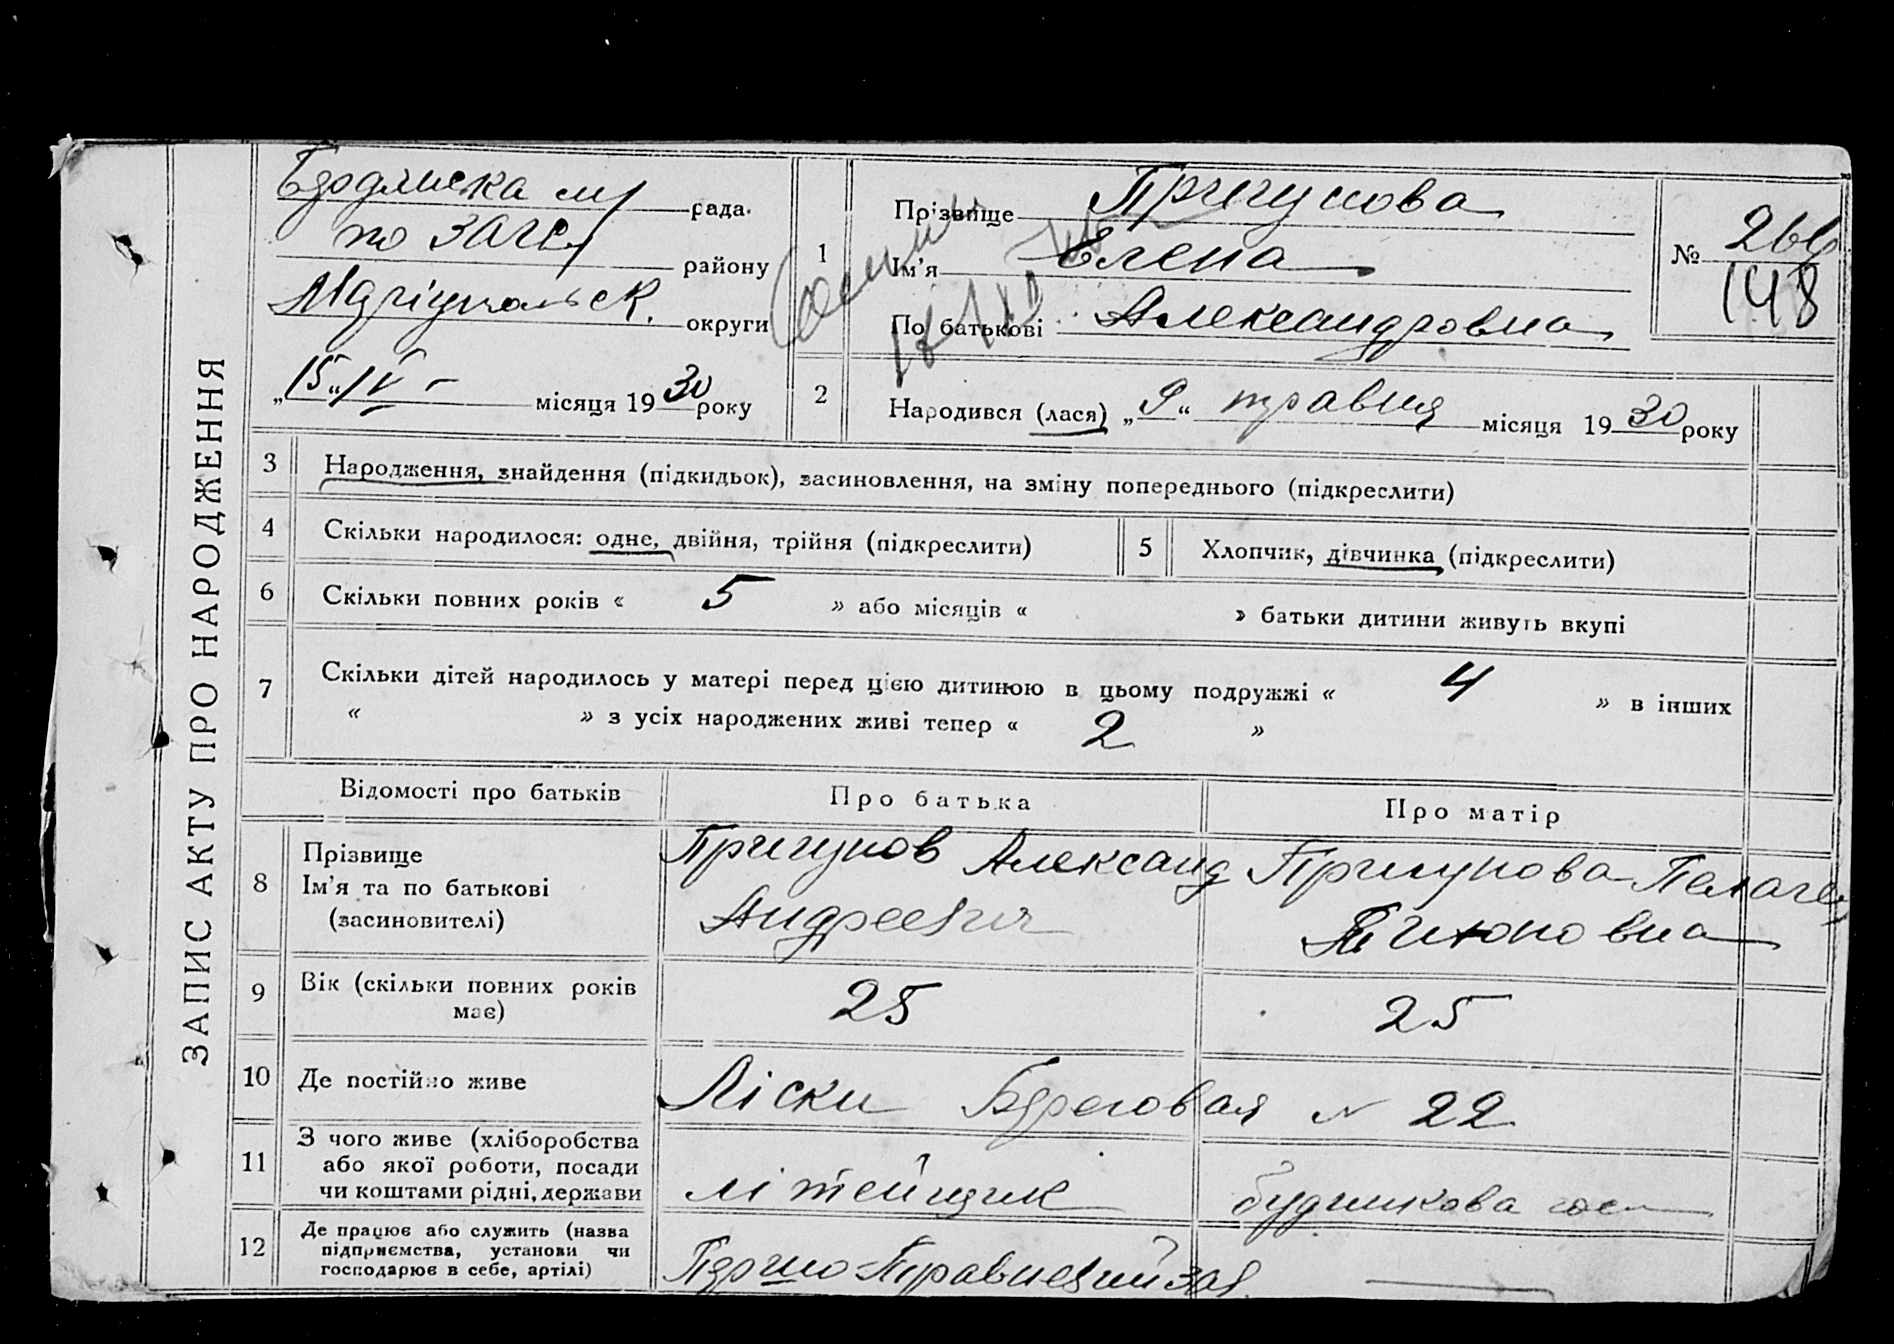 ЗАПИС АКТУ ПРО НАРОДЖЕННЯ
рада.
по ЗАГС району
Маріупольськ. округи
„15“ IV місяця 1930 року
1
Прізвище Пригунова
Ім'я Елена
По батькові Александровна
№ 266
148
2
Народився (лася) „9“ травня місяця 1930 року
3 Народження, знайдення (підкидьок), засиновлення, на зміну попереднього (підкреслити)
4 Скільки народилося: одне, двійня, трійня (підкреслити)
5 Хлопчик, дівчинка (підкреслити)
6 Скільки повних років « 5 » або місяців « » батьки дитини живуть вкупі
7 Скільки дітей народилось у матері перед цією дитиною в цьому подружжі « 4 » в інших
« » з усіх народжених живі тепер « 2 »
Відомості про батьків Про батька Про матір
8 Прізвище
Ім'я та по батькові
(засиновителі)
Пригунов Александ
Андреевич
Пригунова Пелагея
9 Вік (скільки повних років
має)
25
25
10 Де постійно живе Ліски Береговая № 22
11 З чого живе (хліборобства
або якої роботи, посади
чи коштами рідні, держави
літейщик
госп
12 Де працює або служить (назва
підприємства, установи чи
господарює в себе, артілі)
Першо-Травневий зав.